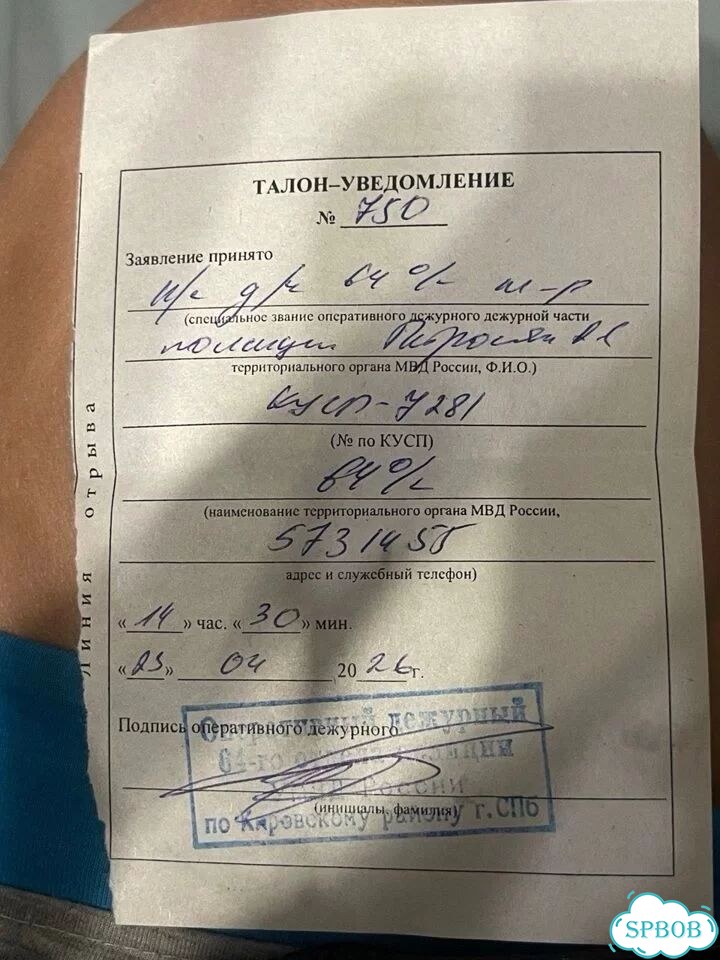 ТАЛОН–УВЕДОМЛЕНИЕ
№ 750
Заявление принято
д/ч 64 о/п м-р
(специальное звание оперативного дежурного дежурной части
полиции
территориального органа МВД России, Ф.И.О.)
КУСП-7281
(№ по КУСП)
64 о/п
(наименование территориального органа МВД России,
5731455
адрес и служебный телефон)
« 14 » час. « 30 » мин.
04 20 26 г.
Подпись оперативного дежурного
(инициалы, фамилия)
Оперативный дежурный
64-го отдела полиции
России
по Кировскому району г. СПб
Линия отрыва
SPBOB